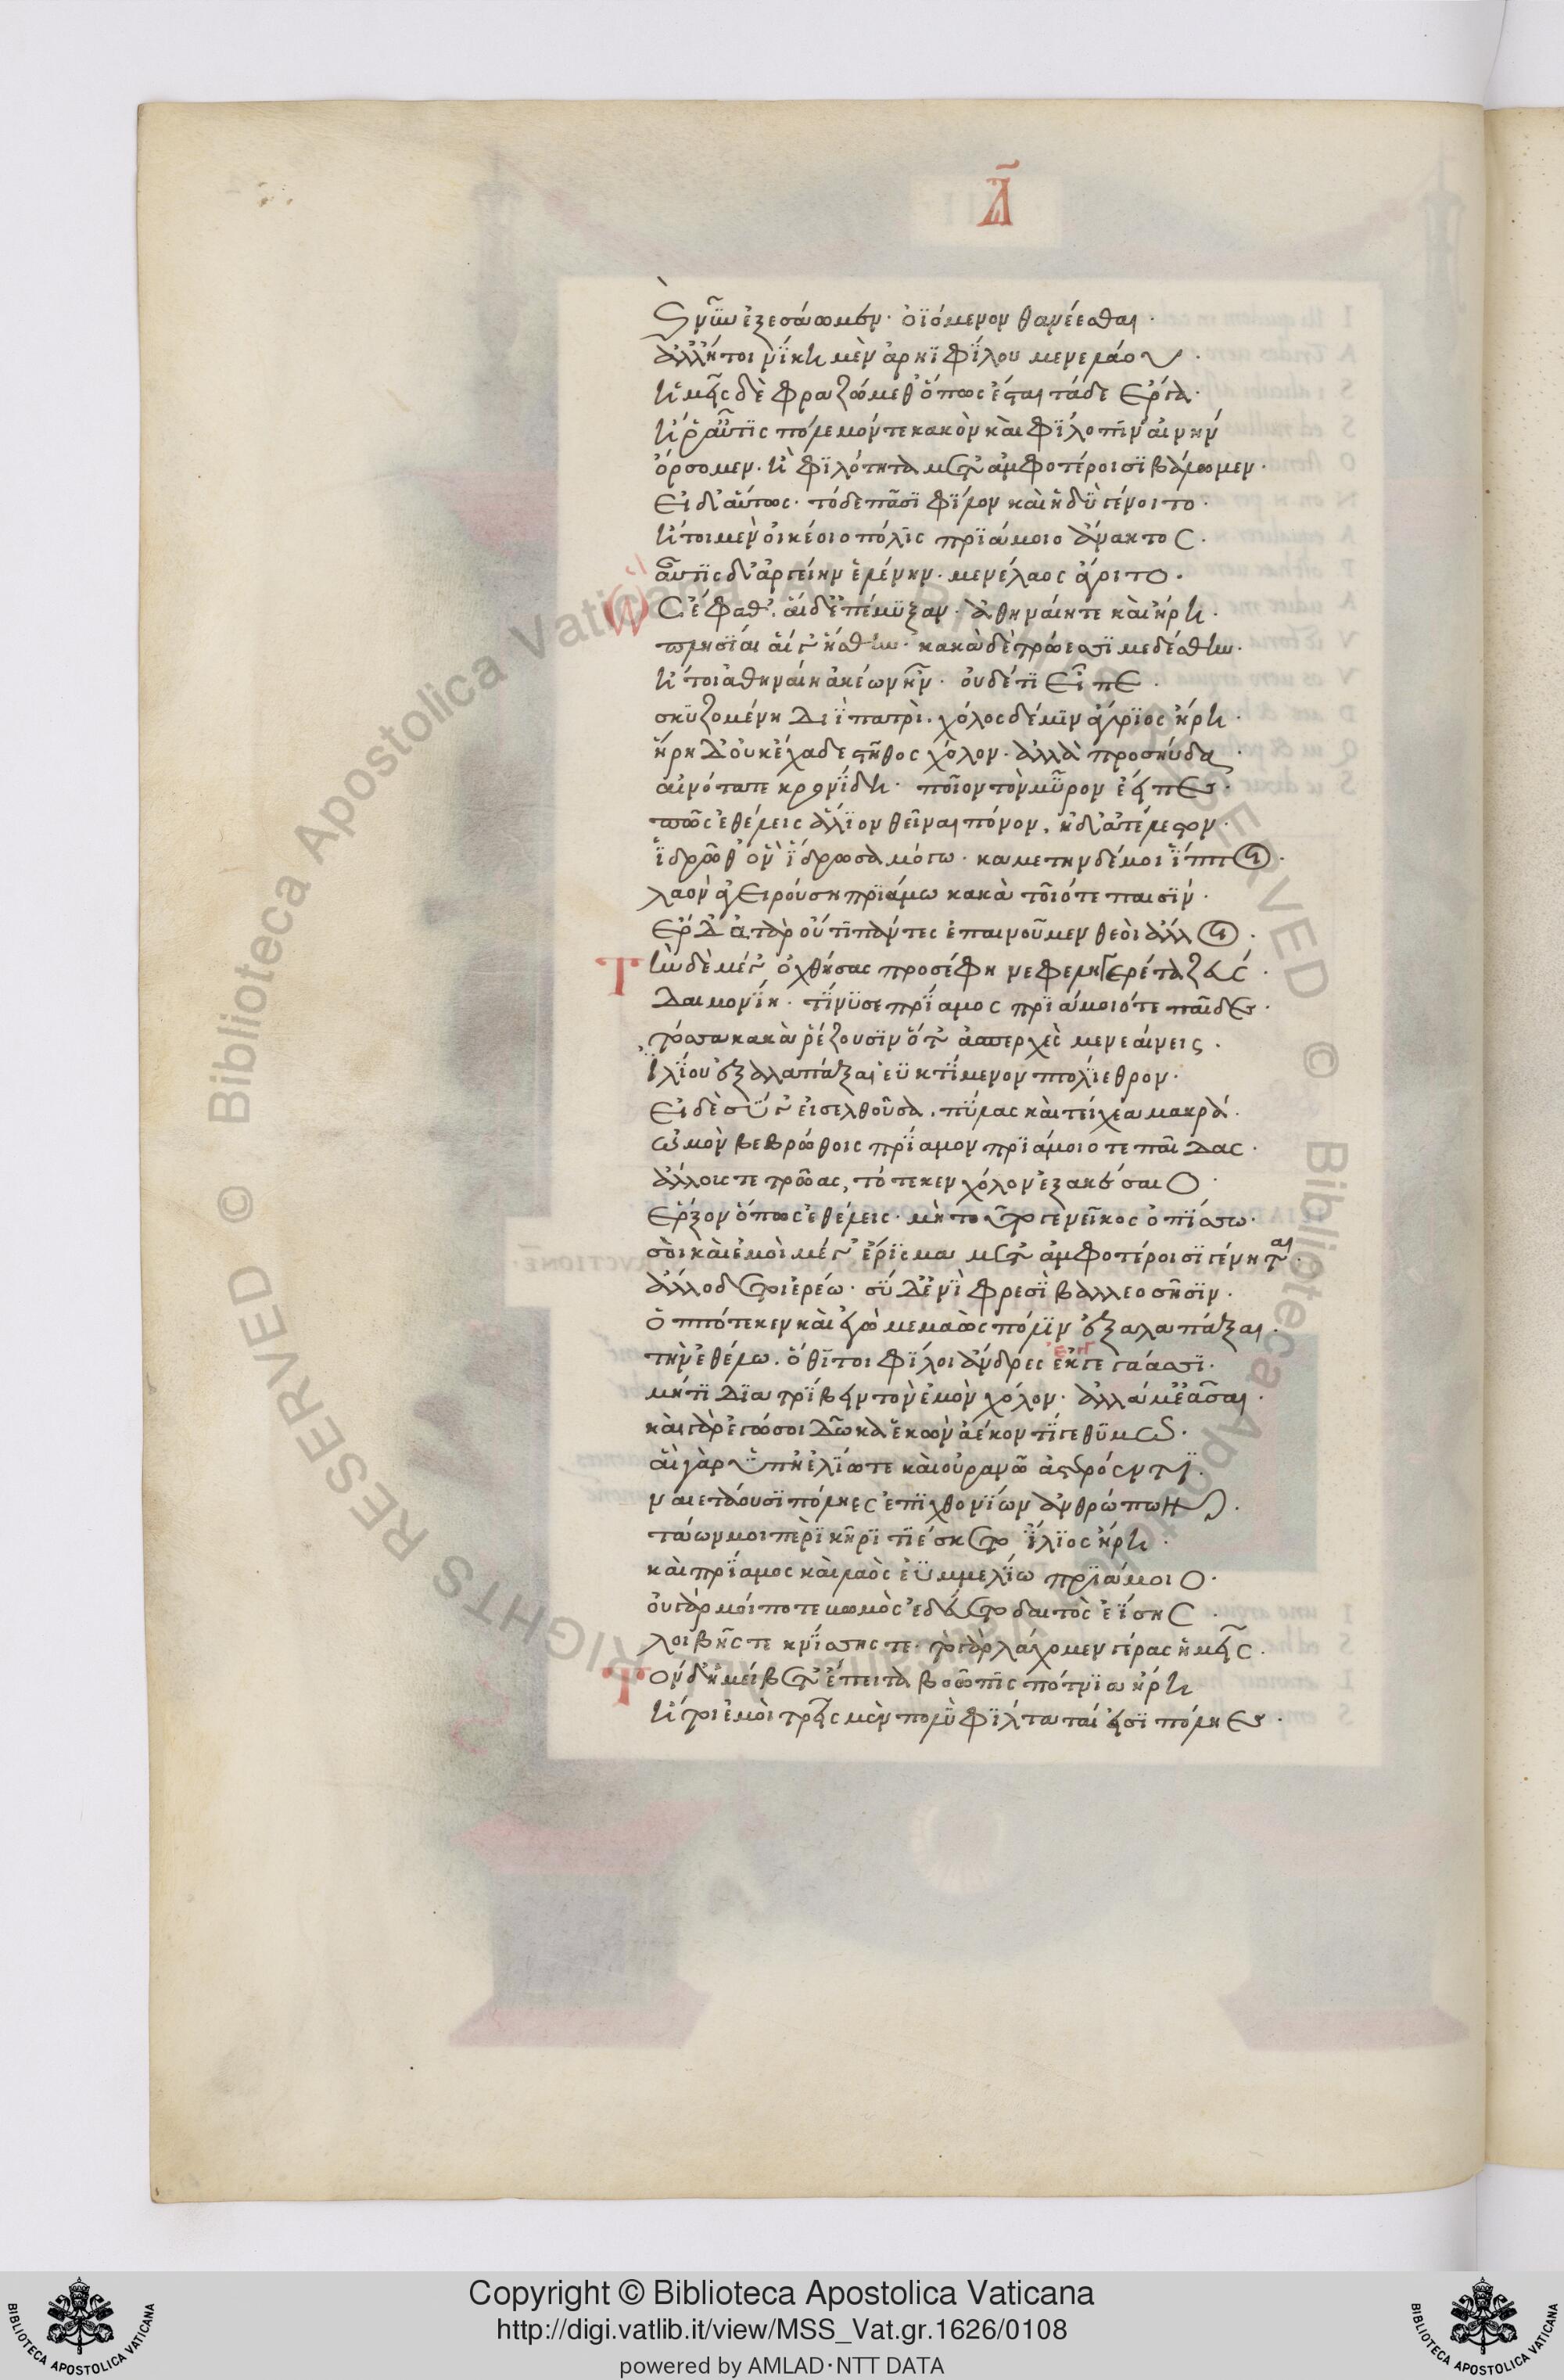 Δ
Καὶ νῦν ἐξεσάωσεν· ὀϊόμενον θανέεσθαι·
ἀλλ' ἤτοι νίκη μὲν ἀρηϊφίλου μενελάου·
ἡμεῖς δὲ φραζώμεθ' ὅπως ἔσται τάδε ἔργα·
ἤ ῥ' αὖτις πόλεμόν τε κακὸν καὶ φύλοπιν αἰνὴν
ὄρσομεν· ἢ φιλότητα μετ' ἀμφοτέροισι βάλωμεν·
εἰ δ' αὔτως· τόδε πᾶσι φίλον καὶ ἡδὺ γένοιτο·
ἤτοι μὲν οἰκέοιο πόλις πριάμοιο ἄνακτος·
αὖτις δ' ἀργείην ἑλένην· μενέλαος ἄγοιτο·
Ὣς ἔφαθ'· αἱ δ' ἐπέμυξαν· ἀθηναίη τε καὶ ἥρη·
πλησίαι αἵ γ' ἥσθην· κακὰ δὲ τρώεσσι μεδέσθην·
ἤτοι ἀθηναίη ἀκέων ἦν· οὐδέ τι εἶπε·
σκυζομένη Διὶ πατρί· χόλος δέ μιν ἄγριος ᾕρει·
ἥρη δ' οὐκ ἔχαδε στῆθος χόλον· ἀλλὰ προσηύδα·
αἰνότατε κρονίδη· ποῖον τὸν μῦθον ἔειπες·
πῶς ἐθέλεις ἅλιον θεῖναι πόνον· ἠδ' ἀτέλεστον·
ἱδρῶ θ' ὃν ἵδρωσα μόγω· καμέτην δέ μοι ἵπποι·
λαὸν ἀγειρούση πριάμω κακὰ τοῖό τε παισίν·
ἔρδ' ἀτὰρ οὔ τι πάντες ἐπαινοῦμεν θεοὶ ἄλλοι·
Τὴν δὲ μέγ' ὀχθήσας προσέφη νεφεληγερέτα ζεύς·
Δαιμονίη· τί νύ σε πρίαμος πριάμοιό τε παῖδες·
τόσσα κακὰ ῥέζουσιν ὅτ' ἀσπερχὲς μενεαίνεις·
Ἰλίου ἐξαλαπάξαι ἐϋκτίμενον πτολίεθρον·
εἰ δὲ σύ γ' εἰσελθοῦσα· πύλας καὶ τείχεα μακρά·
ὠμὸν βεβρώθοις πρίαμον πριάμοιό τε παῖδας·
ἄλλους τε τρῶας, τότε κεν χόλον ἐξακέσαιο·
ἔρξον ὅπως ἐθέλεις· μὴ τοῦτό γε νεῖκος ὀπίσσω·
σοὶ καὶ ἐμοὶ μέγ' ἔρισμα μετ' ἀμφοτέροισι γένηται·
ἄλλο δέ τοι ἐρέω· σὺ δ' ἐνὶ φρεσὶ βάλλεο σῆσιν·
ὁππότε κεν καὶ ἐγὼ μεμαὼς πόλιν ἐξαλαπάξαι·
τὴν ἐθέλω· ὅθι τοι φίλοι ἄνδρες ἐκγεγάασι·
μή τι διατρίβειν τὸν ἐμὸν χόλον· ἀλλά μ' ἐᾶσαι·
καὶ γὰρ ἐγώ σοι δῶκα ἑκὼν ἀέκοντί γε θυμῶ·
αἳ γὰρ ὑπ' ἠελίω τε καὶ οὐρανῶ ἀστερόεντι·
ναιετάουσι πόληες ἐπιχθονίων ἀνθρώπων·
τάων μοι περὶ κῆρι τιέσκετο Ἴλιος ἱρή·
καὶ πρίαμος καὶ λαὸς ἐϋμμελίω πριάμοιο·
οὐ γάρ μοί ποτε βωμὸς ἐδεύετο δαιτὸς ἐΐσης·
λοιβῆς τε κνίσσης τε· τὸ γὰρ λάχομεν γέρας ἡμεῖς·
Τὸν δ' ἠμείβετ' ἔπειτα βοῶπις πότνια ἥρη
ἤτοι ἐμοὶ τρεῖς μὲν πολὺ φίλταταί εἰσι πόληες·
Copyright © Biblioteca Apostolica Vaticana
http://digi.vatlib.it/view/MSS_Vat.gr.1626/0108
powered by AMLAD·NTT DATA